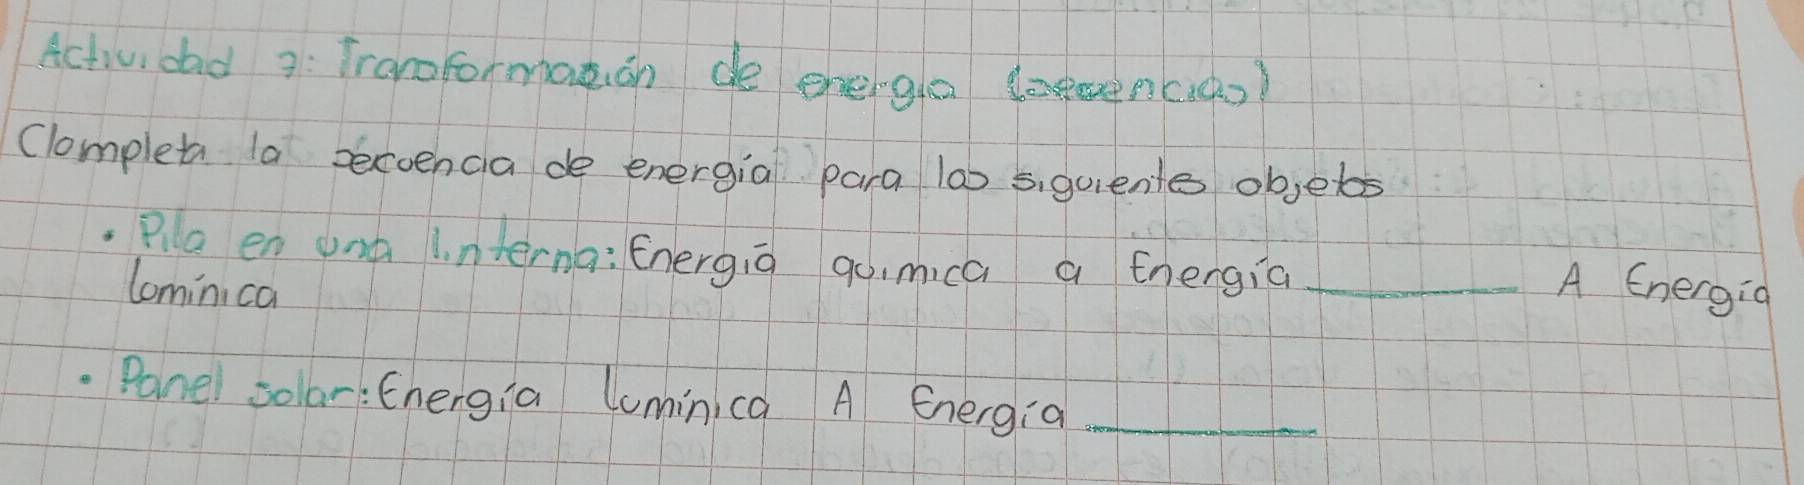 Actividad 3: Transformación de energía (secuencias)
Completa la secuencia de energía para los siguientes objetos
• Pila en una linterna: Energía quimica a Energía ________ A Energía
lominica
• Panel solar: Energía luminica A Energía ________